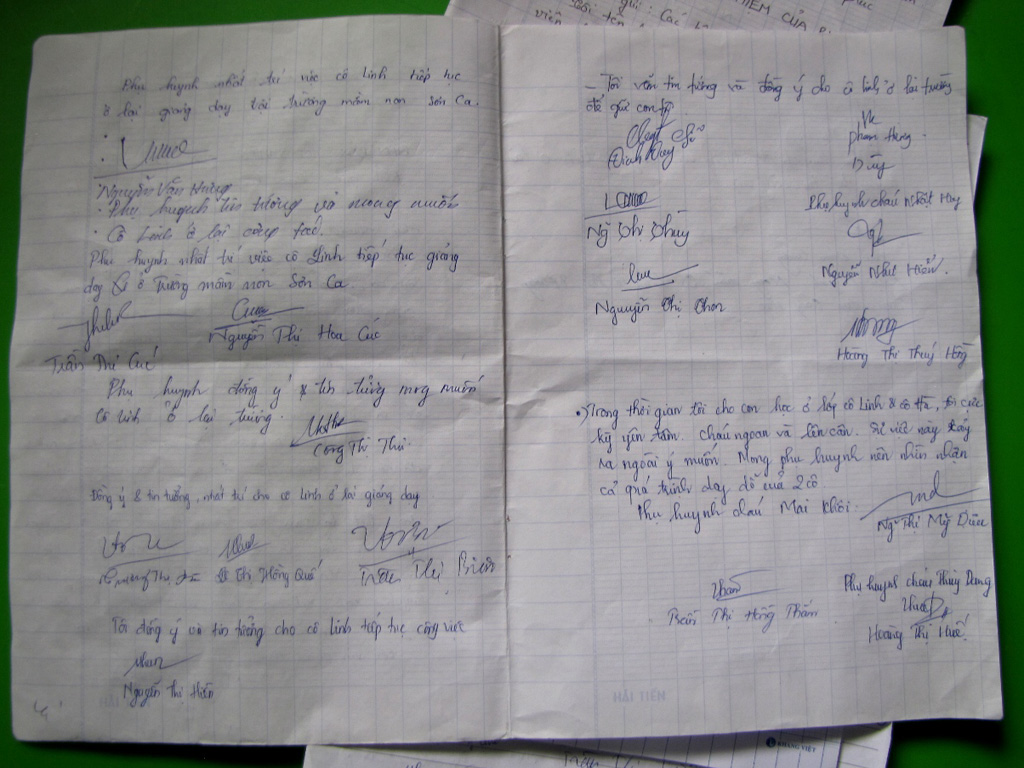 Phụ huynh nhất trí việc cô Linh tiếp tục
ở lại giảng dạy tại trường mầm non Sơn Ca.
Nguyễn Văn Hùng
Phụ huynh tin tưởng và mong muốn
Cô Linh ở lại công tác.
Phụ huynh nhất trí việc cô Linh tiếp tục giảng
dạy ở Trường mầm non Sơn Ca.
Nguyễn Thị Hoa Cúc
Trần Thị Cúc
Phụ huynh đồng ý & tin tưởng mong muốn
Cô Linh ở lại trường.
Công Thị Thu
Đồng ý & tin tưởng, nhất trí cho cô Linh ở lại giảng dạy
Thị Hồng Quế
Trần Thị
Tôi đồng ý và tin tưởng cho cô Linh tiếp tục công việc
Nguyễn Thị Hiền
HẢI TIẾN
- Tôi vẫn tin tưởng và đồng ý cho cô Linh ở lại trường
để gửi con
Đinh Duy
Phạm Hùng
Dũng
Ng Thị Thủy
Phụ huynh cháu Nhật Huy
Nguyễn Như Hiển.
Nguyễn Thị Thơn
Hoàng Thị Thuý Hồng
Trong thời gian tôi cho con học ở lớp cô Linh & cô Hà, tôi cực
kỳ yên tâm. Cháu ngoan và lên cân. Sự việc này xảy
ra ngoài ý muốn. Mong phụ huynh nên nhìn nhận
cả quá trình dạy dỗ của 2 cô
Phụ huynh cháu Mai Khôi.
Ng Thị Mỹ Dừa
Trần Thị Hồng Thắm
Phụ huynh cháu Thùy Dung
Hoàng Thị Huế
HẢI TIẾN
KHANG VIỆT